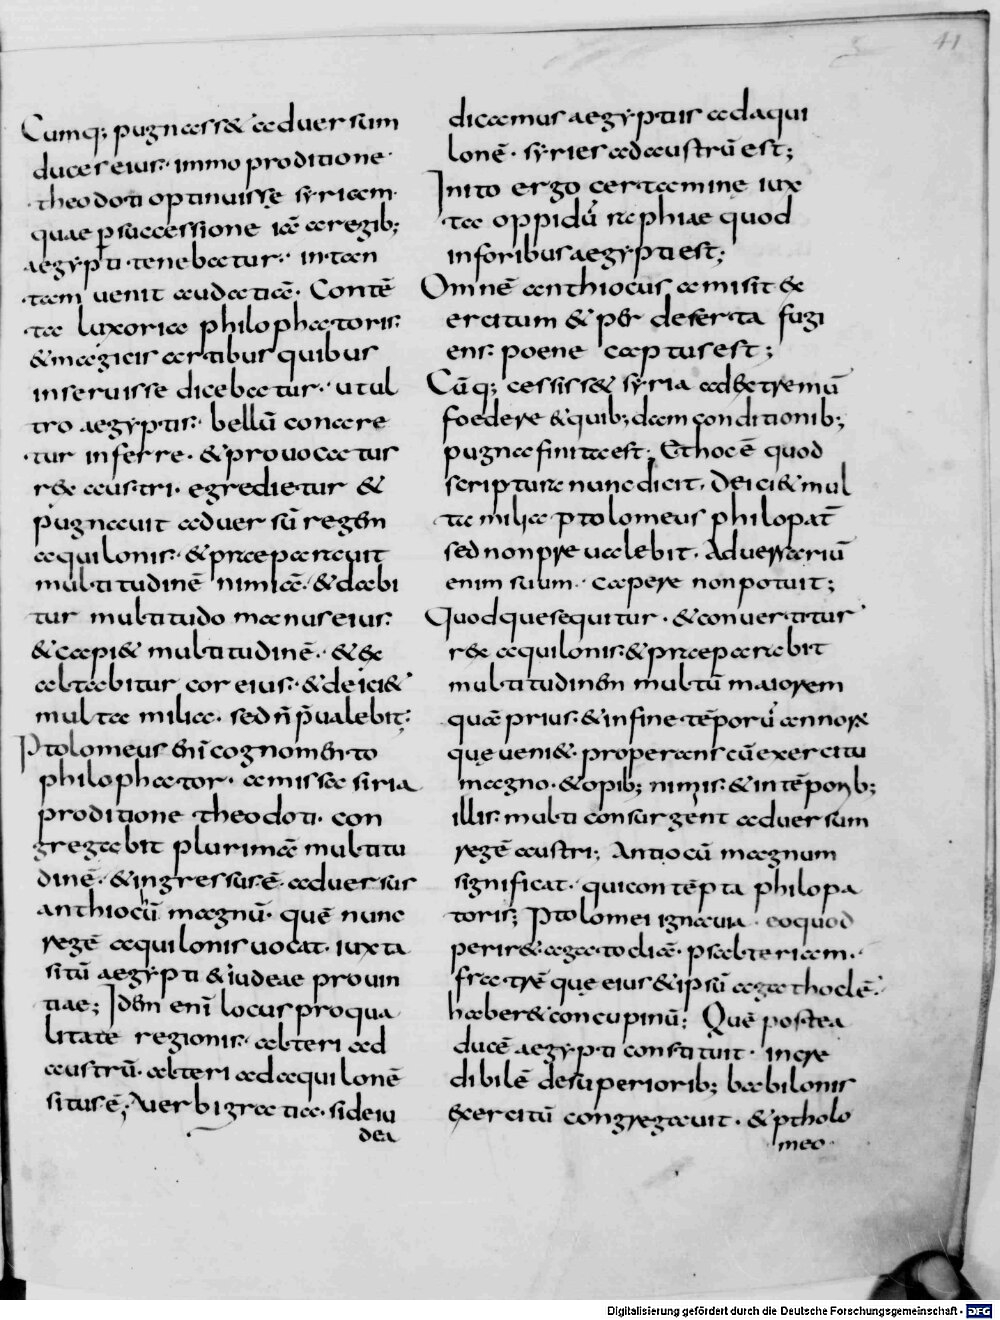 41
Cumq; pugnass& aduersum
duces eius· immo proditione·
·theodoti optinuisse syriam·
quae p successione iā a regib;
aegypti·tenebatur·· in tan
·tam uenit audatiā· Contē
·ta luxoria philophatoris·
& magicis artibus quibus
inseruisse dicebatur·· ut ul
tro aegyptis· bellū conare
·tur inferre· & prouocatus
rex austri· egredietur &
pugnauit aduersū regem
aquilonis· & praeparauit
multitudinē nimiā· & dabi
tur multitudo manus eius·
& capi& multitudinē·· & ex
altabitur cor eius·· & deici&
multa milia· sed ñ p̄ualebit;
Ptolomeus enī cognomento
philophator· amissa siria
proditione theodoti· con
gregabit plurimā multitu
dinē· & ingressus ē aduersus
anthiochū magnū· quē nunc
regē aquilonis uocat· iuxta
sitū aegypti & iudeae prouin
tiae; Idem enī locus pro qua
litate regionis· alteri ad
austrū· alteri ad aquilonē
situs ē; Auerbi gratia· si de iu
dea
dicamus aegyptiis ad aqui
lonē· syries ad austrū est;
Inito ergo certamine iux
ta oppidū raphiae quod
in foribus aegypti est;
Omnē anthiocus amisit ex
ercitum & per deserta fugi
ens· poene captus est;
Cūq; cessiss& syria ad extremū
foedere & quib;dam conditionib;
pugna finita est; Et hoc ē quod
scriptura nunc dicit· Deici& mul
ta milia ptolomeus philopat̄
sed non preualebit· Aduersariū
enim suum· capere non potuit;
Quodque sequitur· & conuertitur
rex aquilonis & praeparabit
multitudinem multū maiorem
quā prius· & in fine tēporū annorū
que ueni& properans cū exercitu
magno· & opib; nimis· & in tēporib;
illis· multi consurgent aduersum
regē austri; Antiocū magnum
significat· qui contēpta philopa
toris; Ptolomei ignauia· eo quod
perir& agatocliā· psalteriam··
fratrē que eius & ipsū agathoclē·
haber& concupinū; Quē postea
ducē aegypti constituit· incre
dibilē de superiorib; babilonis
exercitū congregauit· & ptholo
meo·
Digitalisierung gefördert durch die Deutsche Forschungsgemeinschaft · DFG